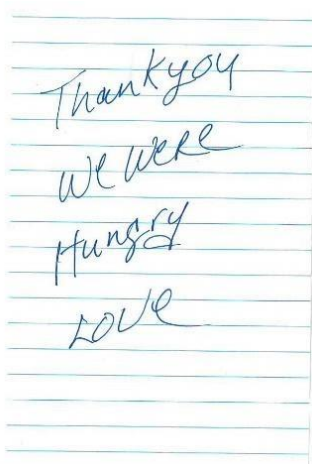 Thankyou
We Were
Hungry
Love